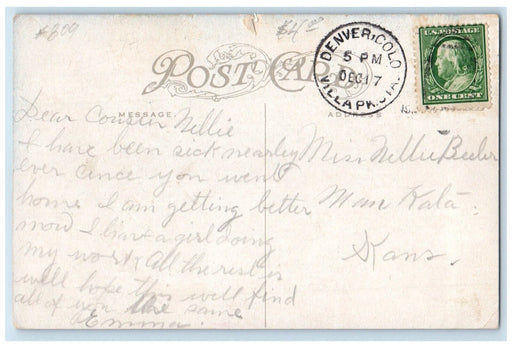 #809
$4.00
DENVER, COLO.
5 PM
DEC 17
VILLA PK. STA.
U.S. POSTAGE
ONE CENT
POST CARD
MESSAGE.
ADDRESS
Dear Cousin Nellie
I have been sick nearley
ever cince you went
home I am getting better
now I have a girl doing
my work All the rest is
well hope this will find
all of you the same
Emma.
Miss Nellie Beeler
Man Kata.
Kans.